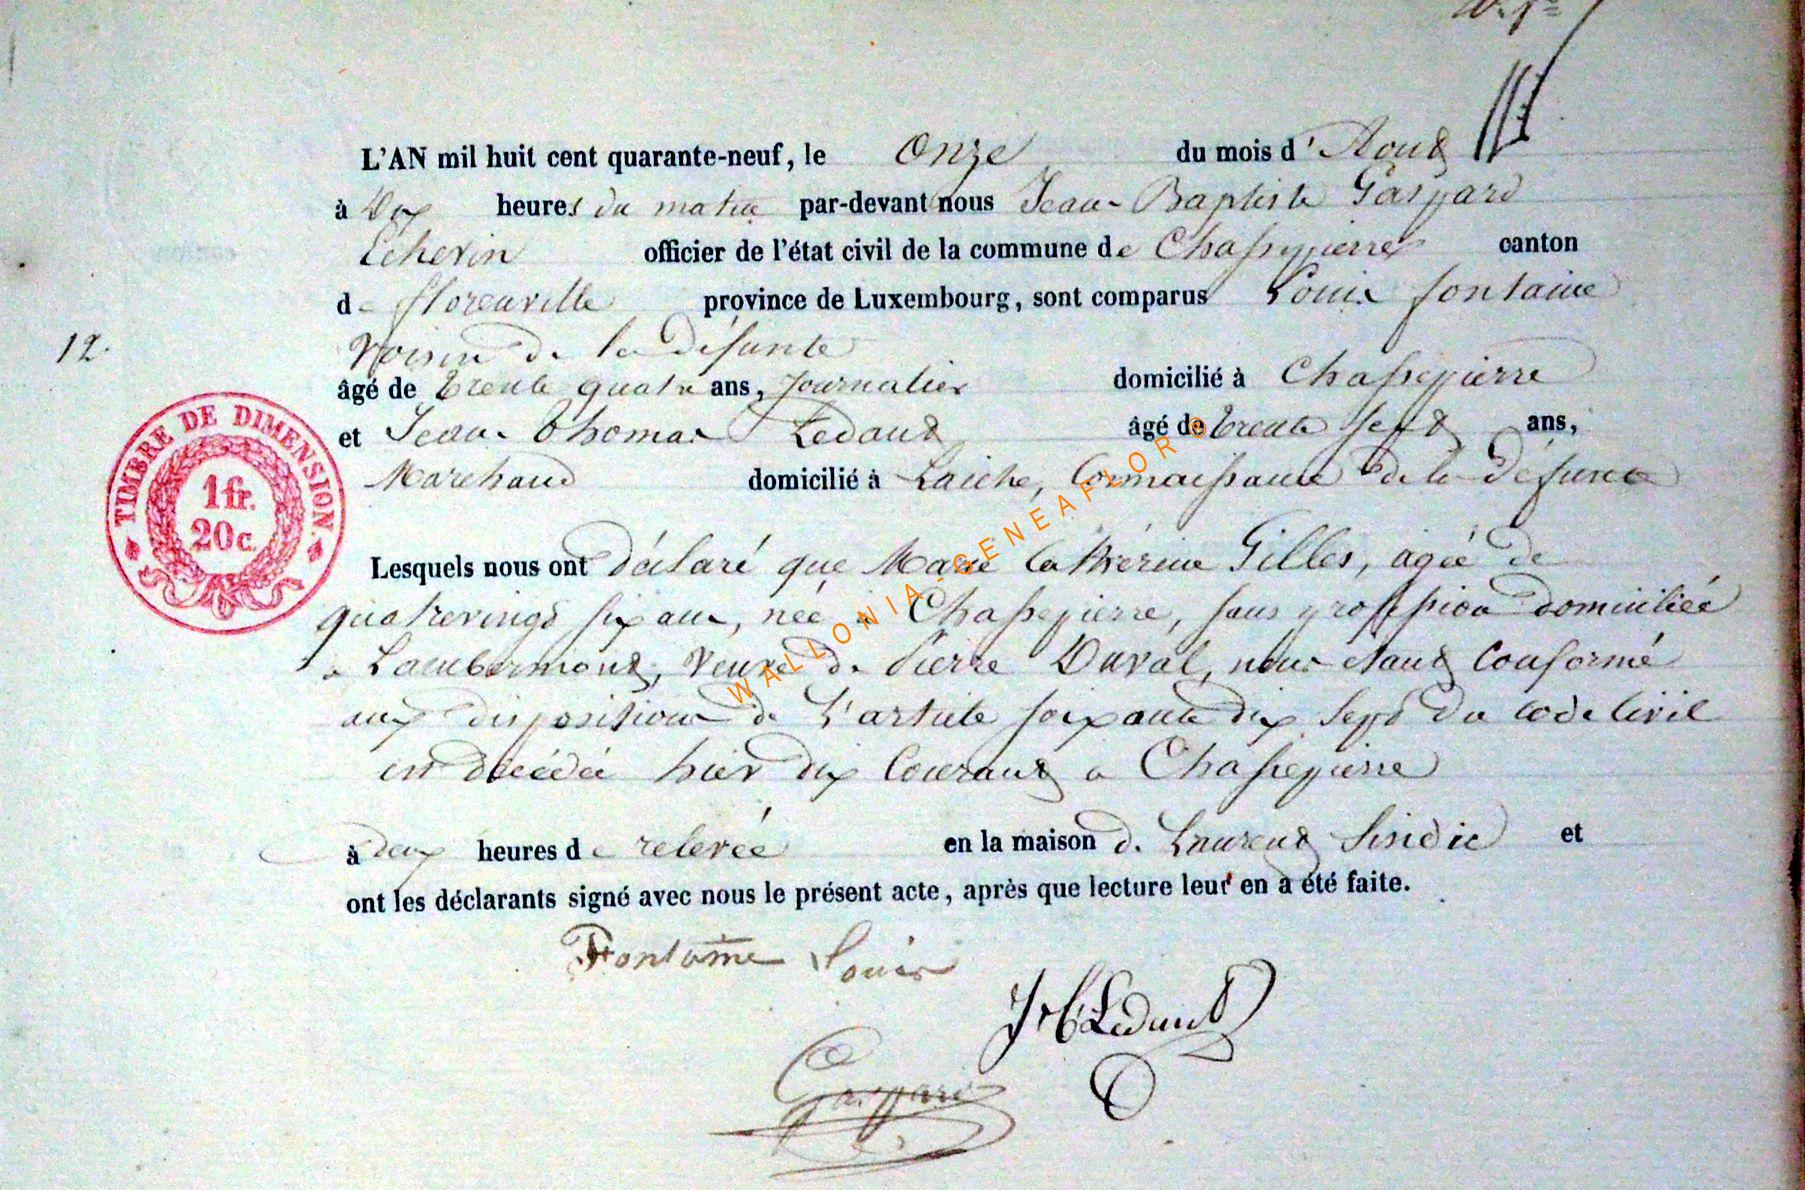 L'AN mil huit cent quarante-neuf, le Onze du mois d'Aout
à Dix heures du matin par-devant nous Jean-Baptiste Gaspard
Echevin officier de l'état civil de la commune de Chassepierre canton
de florenville province de Luxembourg, sont comparus Louis fontaine
Voisin de la défunte
12.
âgé de trente quatre ans, Journalier domicilié à Chassepierre
et Jean Thomas Ledant âgé de trente sept ans,
Marchand domicilié à Laiche, Connaissance de la défunte
TIMBRE DE DIMENSION.
1 fr.
20 c.
Lesquels nous ont déclaré que Marie Catherine Gilles, agée de
quatrevingt six ans, née à Chassepierre, sans profession domiciliée
a Lambermont, Veuve de Pierre Duval, nous etant Conformé
aux dispositions de L'article soixante dix Sept du code Civil
est décédée hier dix Courant a Chassepierre
à deux heures de relevée en la maison de Laurent Sindic et
ont les déclarants signé avec nous le présent acte, après que lecture leur en a été faite.
Fontaine Louis
J th Ledant
Gaspard
WALLONIA-GENEAFLOR©